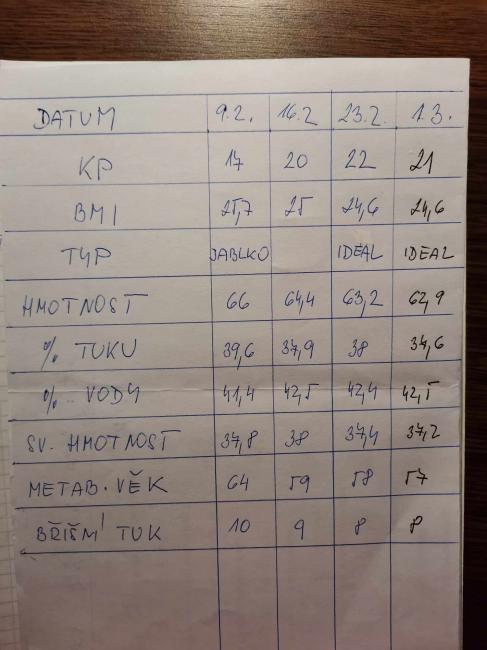 DATUM 9.2. 16.2 23.2. 1.3.
KP 17 20 22 21
BMI 25,7 25 24,6 24,6
TYP JABLKO IDEAL IDEAL
HMOTNOST 66 64,4 63,2 62,9
% TUKU 39,6 37,9 38 37,6
% VODY 41,4 42,5 42,4 42,5
SV. HMOTNOST 37,8 38 37,4 37,2
METAB. VĚK 64 59 58 57
BŘIŠNÍ TUK 10 9 8 8